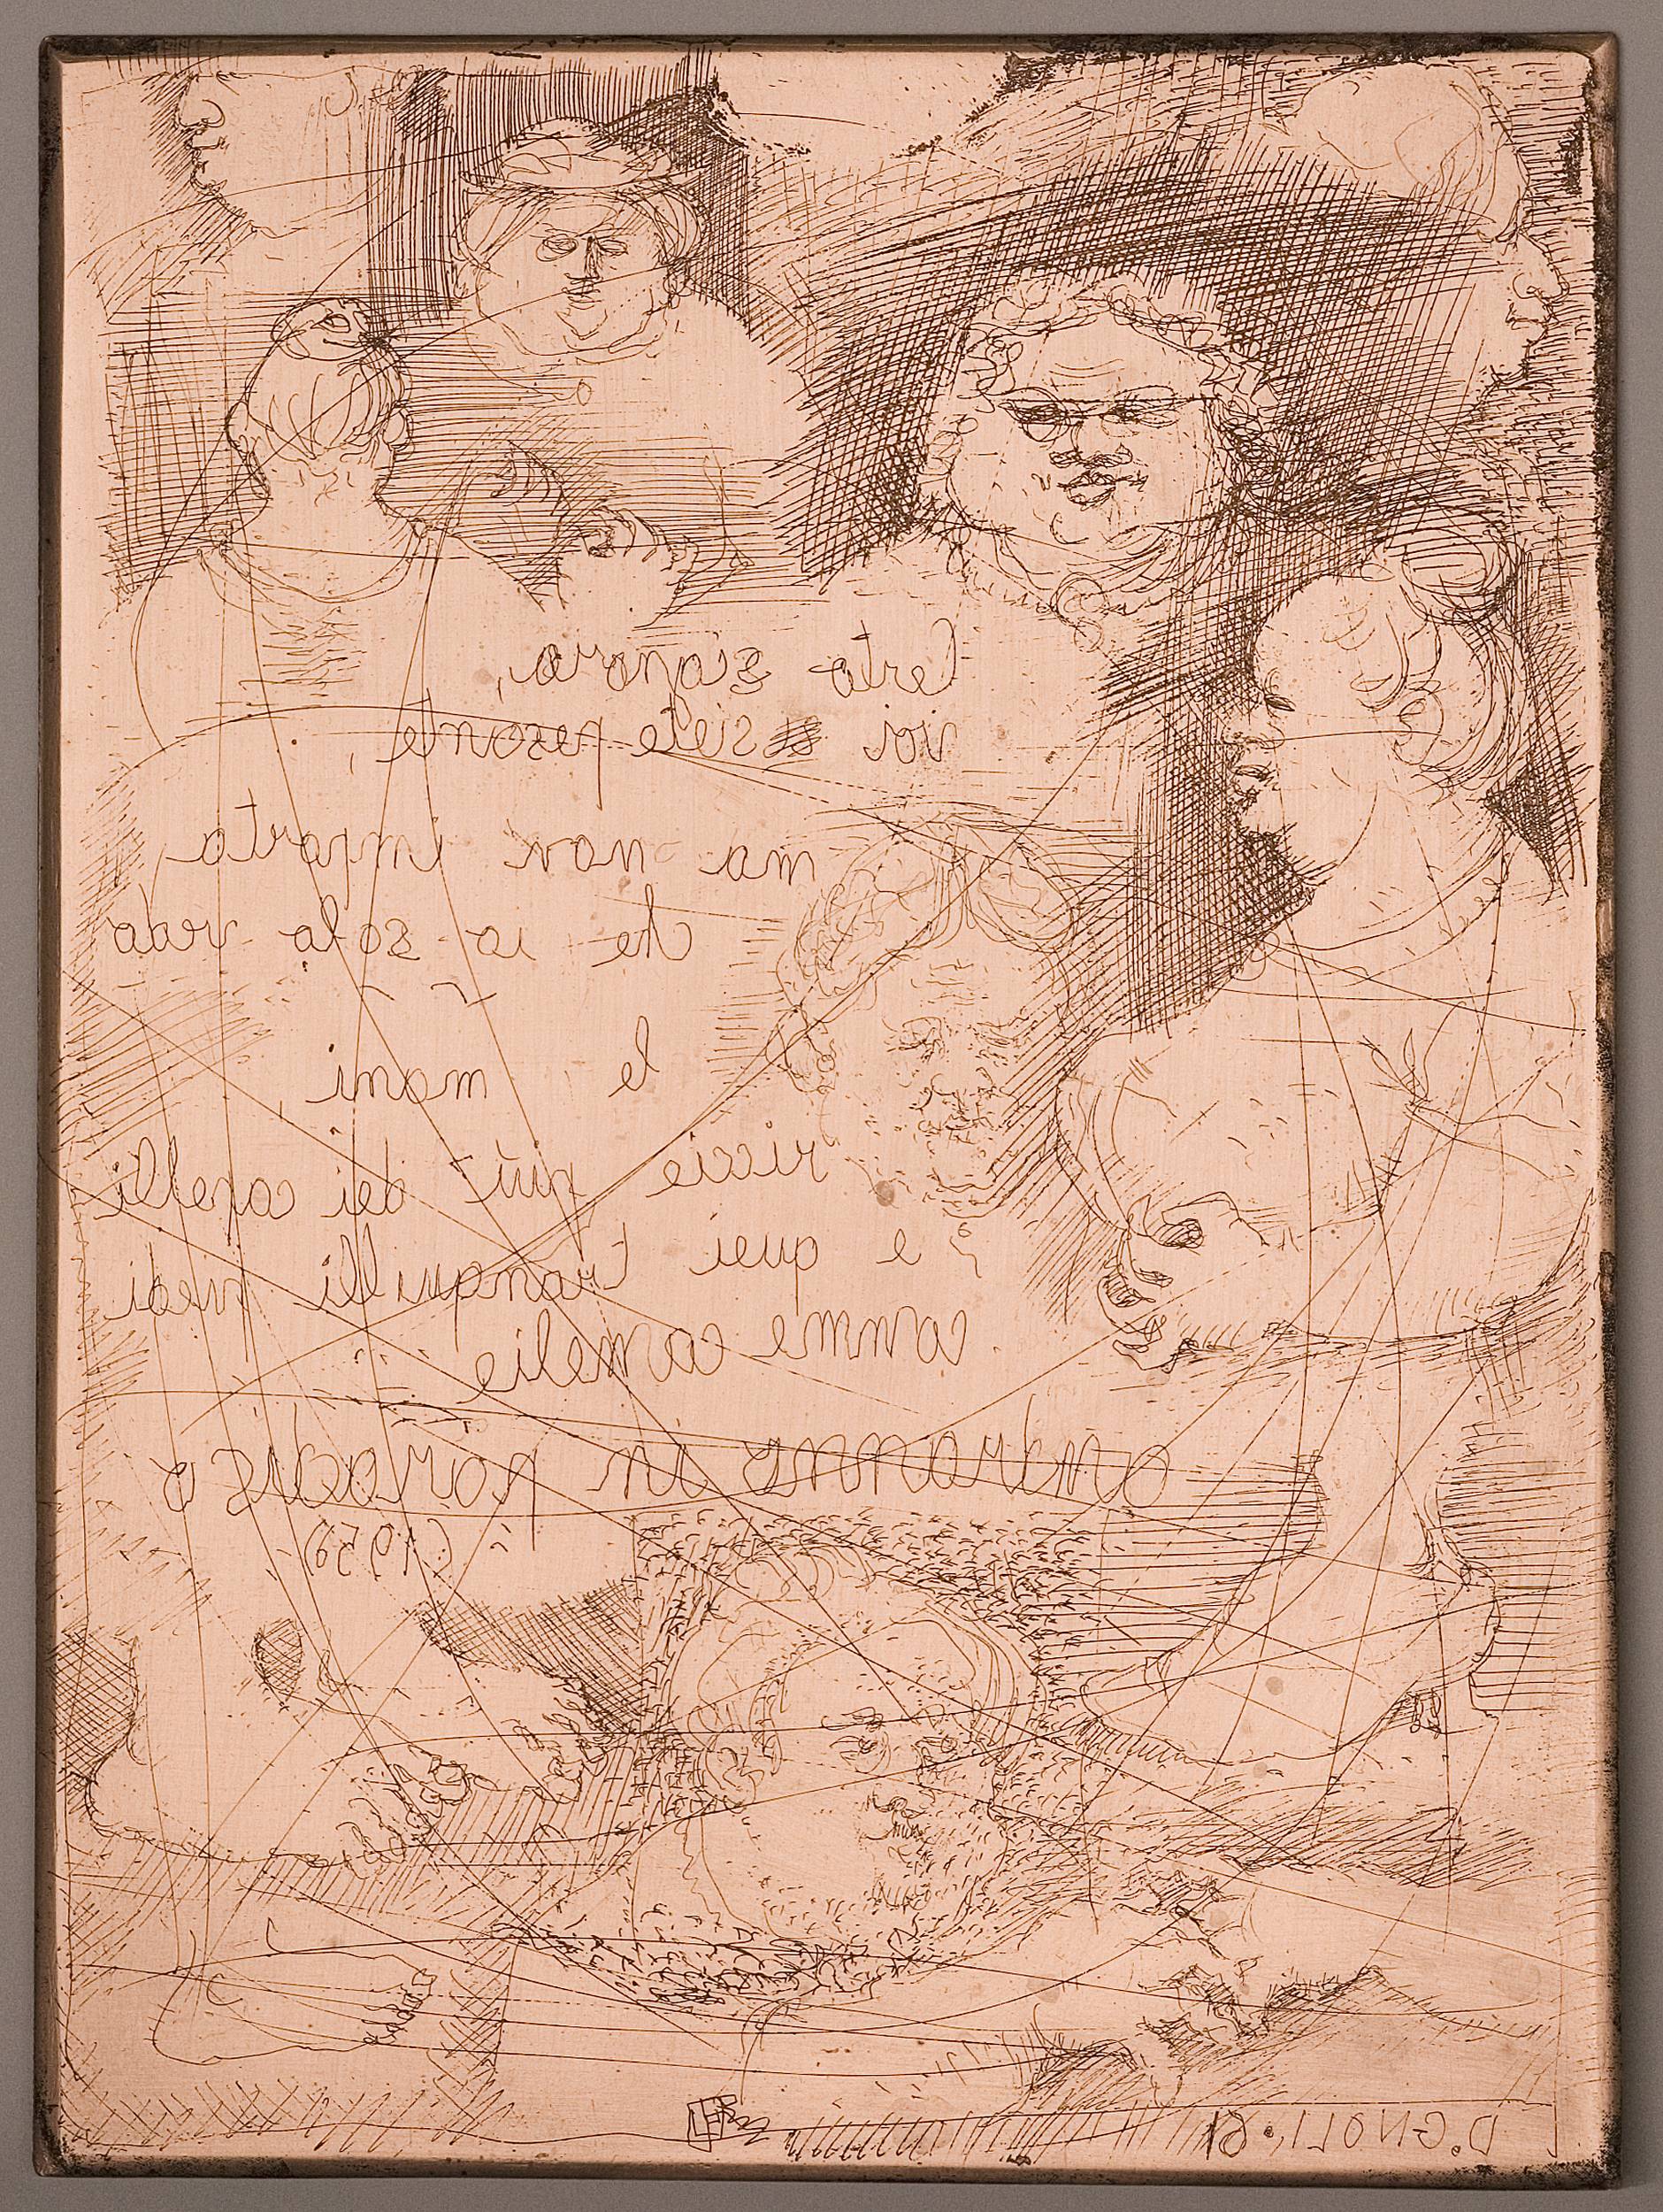 Certa signora,
voi siete pesante,
ma non importa
che io sola vada
le mani,
riccie più dei capelli
e quei tranquilli piedi
comme camelie
ombranns in pòrocis a
(1959)
D. GNOLI, 61